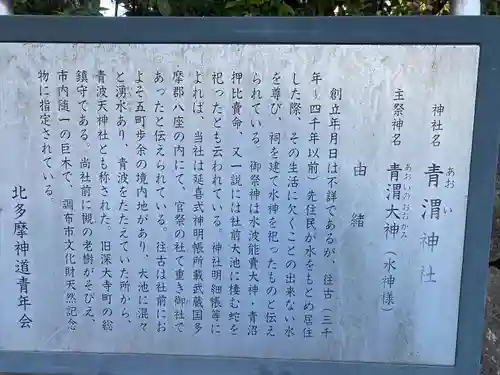 神社名 青渭神社
あおい
主祭神名 青渭大神（水神様）
あおいのおおかみ
由緒
創立年月日は不詳であるが、往古（三千
年～四千年以前）先住民が水をもとめ居住
した際、その生活に欠くことの出来ない水
を尊び、祠を建て水神を祀ったものと伝え
られている。御祭神は水波能賣大神・青沼
押比賣命、又一説には社前大池に棲む蛇を
祀ったとも云われている。神社明細帳等に
よれば、当社は延喜式神明帳所載武蔵国多
摩郡八座の内にて、官祭の社で重き御社で
あったと伝えられている。往古は社前にお
よそ五町歩余の境内地があり、大池に混々
と湧水あり、青波をたたえていた所から、
青波天神社とも称された。旧深大寺町の総
鎮守である。尚社前に槻の老樹がそびえ、
市内随一の巨木で、調布市文化財天然記念
物に指定されている。
北多摩神道青年会